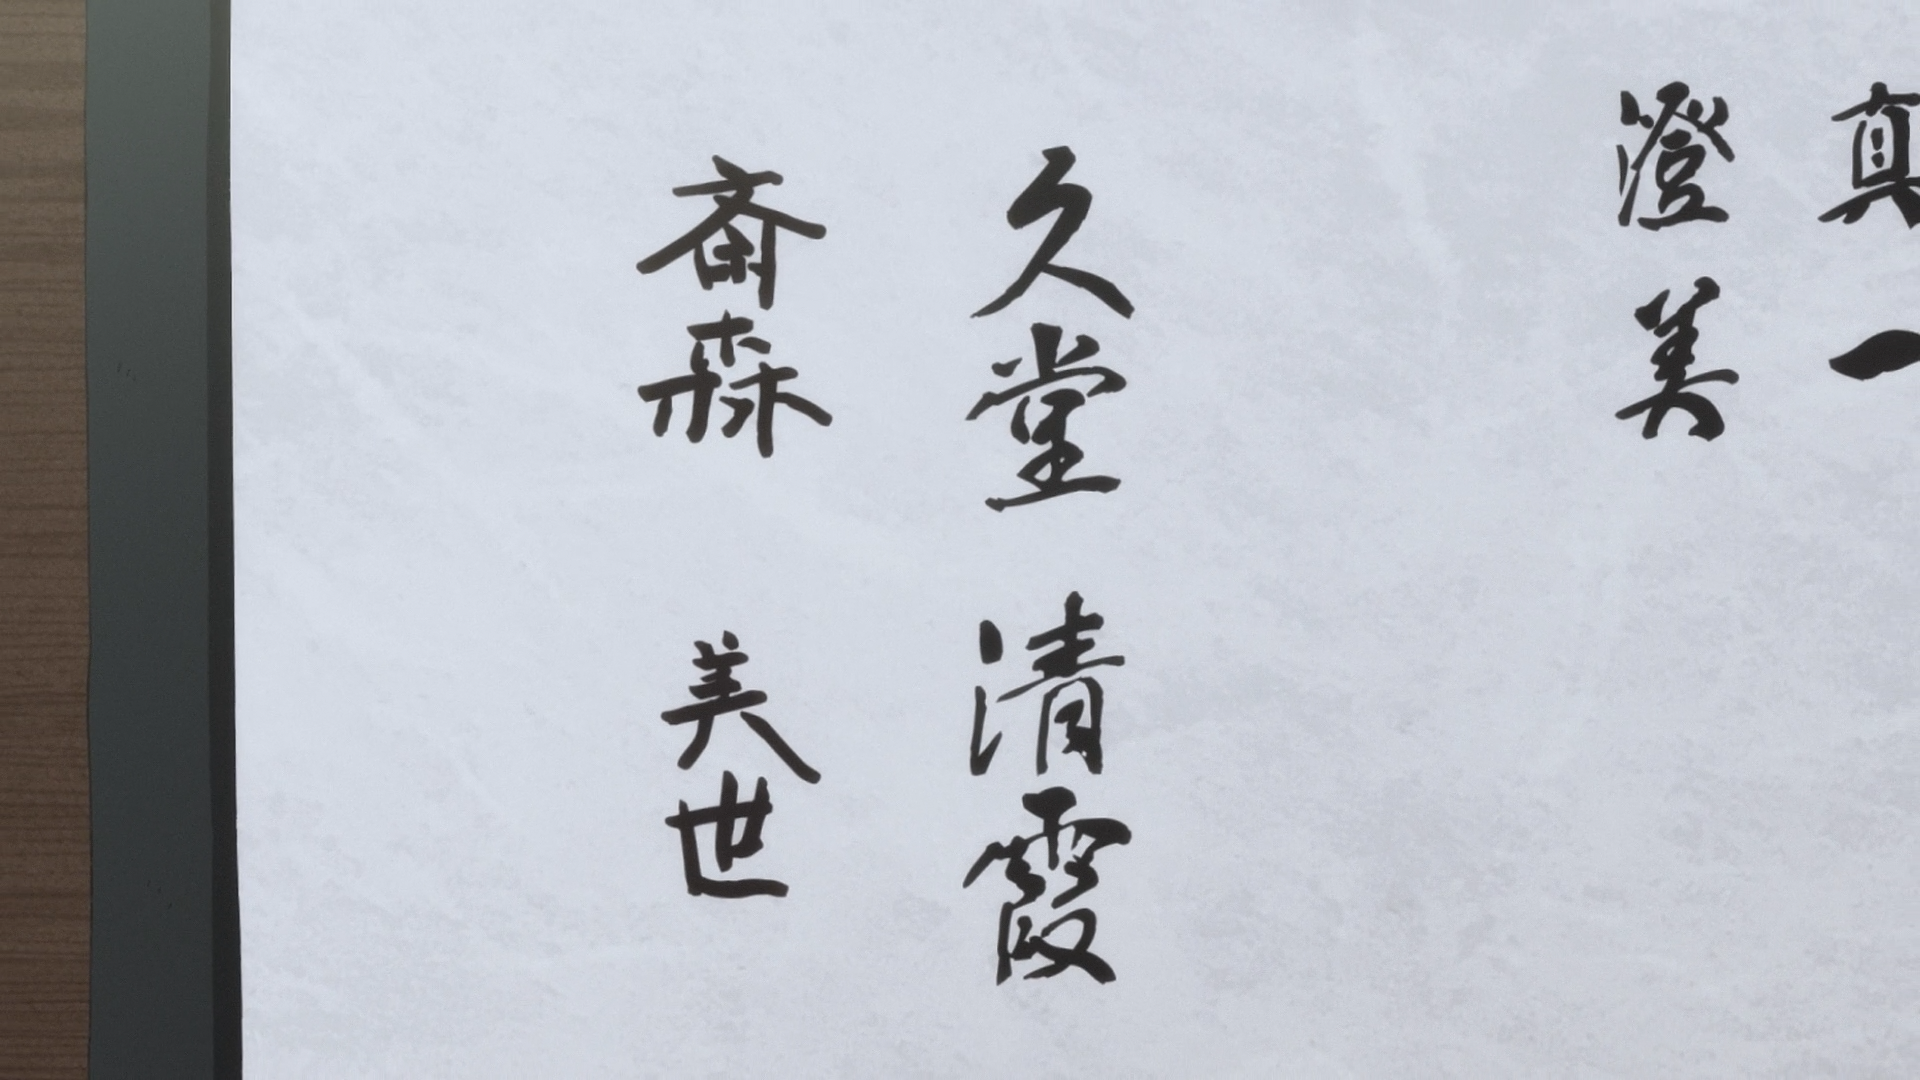 真一
澄美
久堂 清霞
斎森 美世